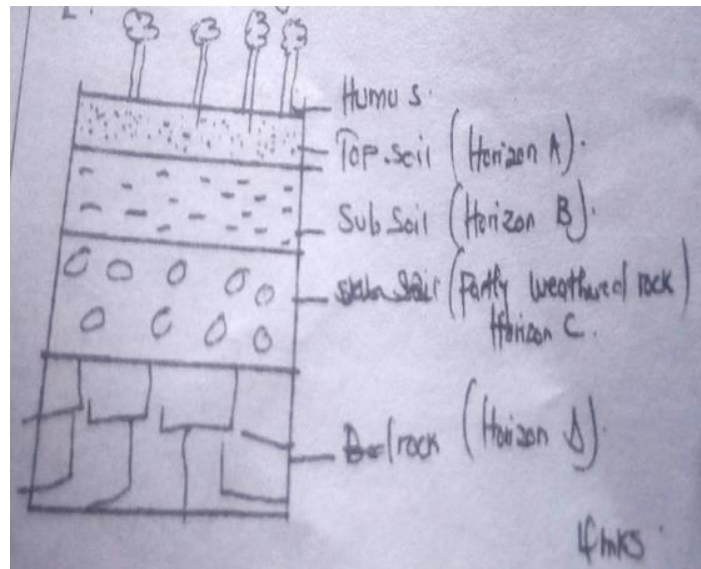 Humus.
Top soil (Horizon A).
Sub Soil (Horizon B).
(Partly weathered rock)
Horizon C.
Bed rock (Horizon D).
4mks.